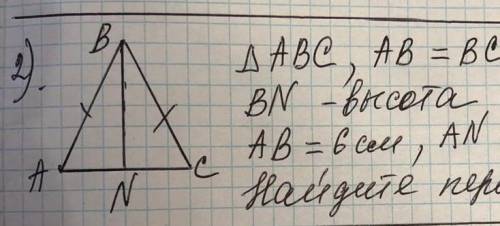 2).
B
A
N
C
Δ ABC, AB = BC
BN - высота
AB = 6 см, AN
Найдите